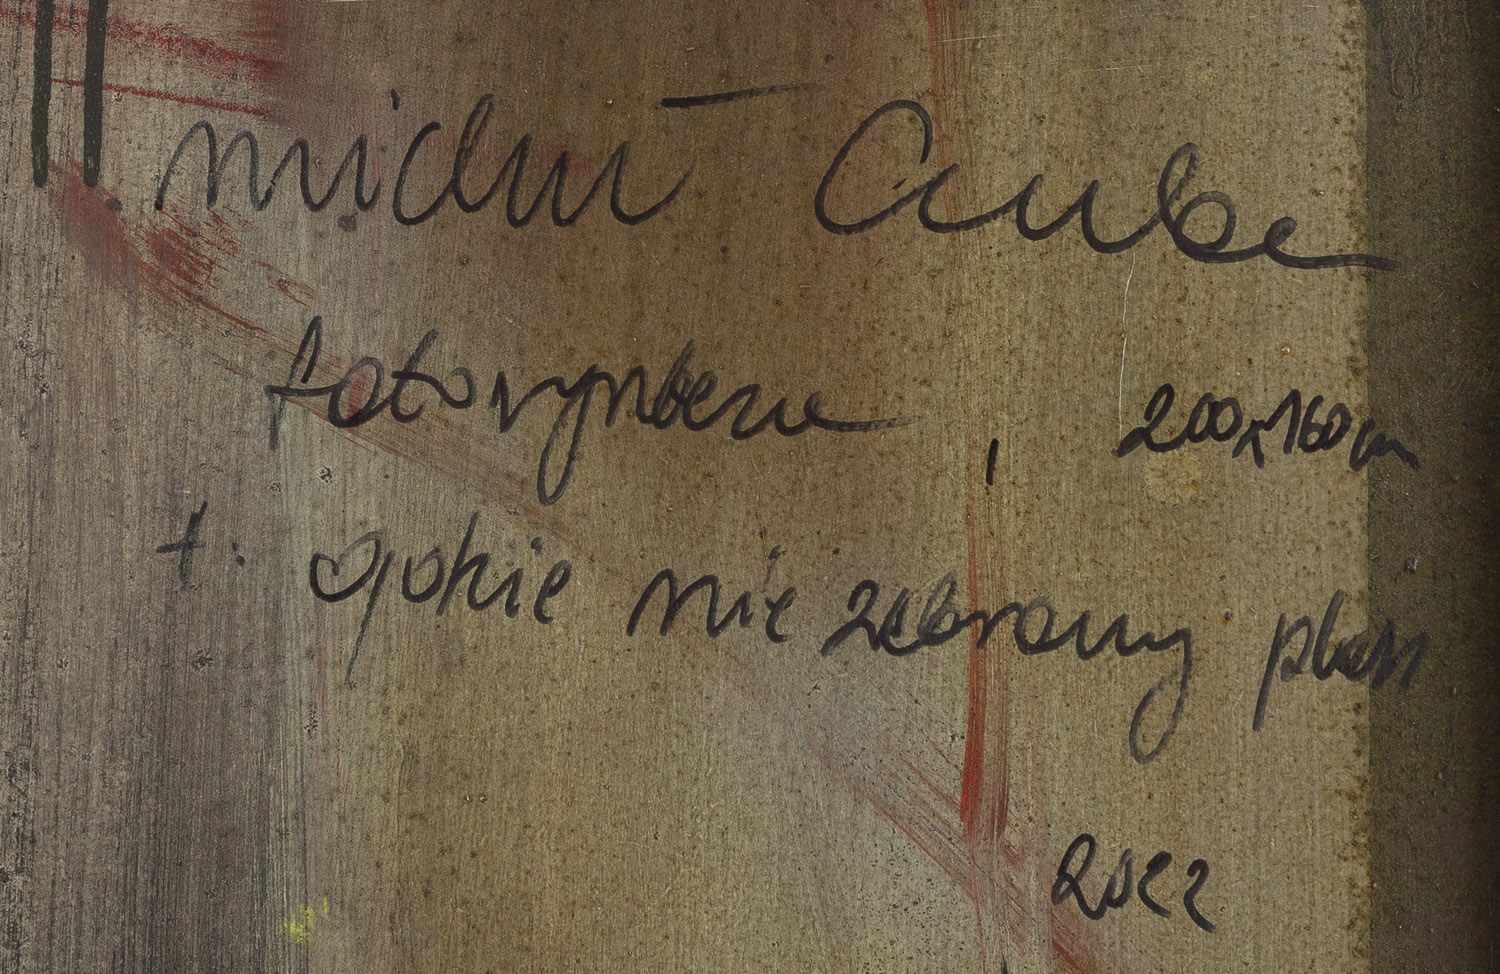 michał Czuba
fotosynteza, 200x160cm
niezebrany plon
2022